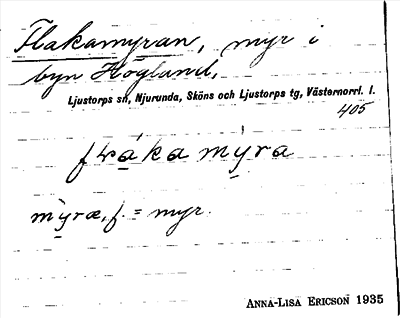 Flakamyran, myr i
byn Högland,
Ljustorps sn, Njurunda, Sköns och Ljustorps tg, Västernorrl. l.
405
mỳra, f. = myr.
ANNA-LISA ERICSON 1935